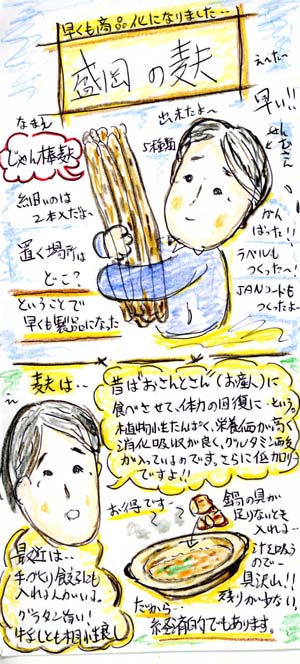 早くも商品化になりました…
盛岡の麸
え〜た〜
早い!!
出来たよ〜
5種類
なまえ
じゃん棒麸
細いのは
2本入だよ〜
置く場所は
どこ?
ということで
早くも製品になった
せんむさんと
がん
ばった!!
ラベルも
つくった〜!
JANコードも
つくったよ〜
麸は…
え
昔は"おさんとさん"(お産人)に
食べさせて、体力の回復に…という。
植物性たんぱく、栄養価が高く
消化吸收が良く、グルタミン酸
が入っているのです。さらに低カロリー
ですよ!!
お得です…
鍋の具が
足りないとも
入れる…
汁を吸う
ので…
具沢山!!
残りが少ない。
最近は…
手づくり餃子にも
入れる人がいる。
グラタン旨い!
牛乳とも相性良し
だから…
経済的でもあります。